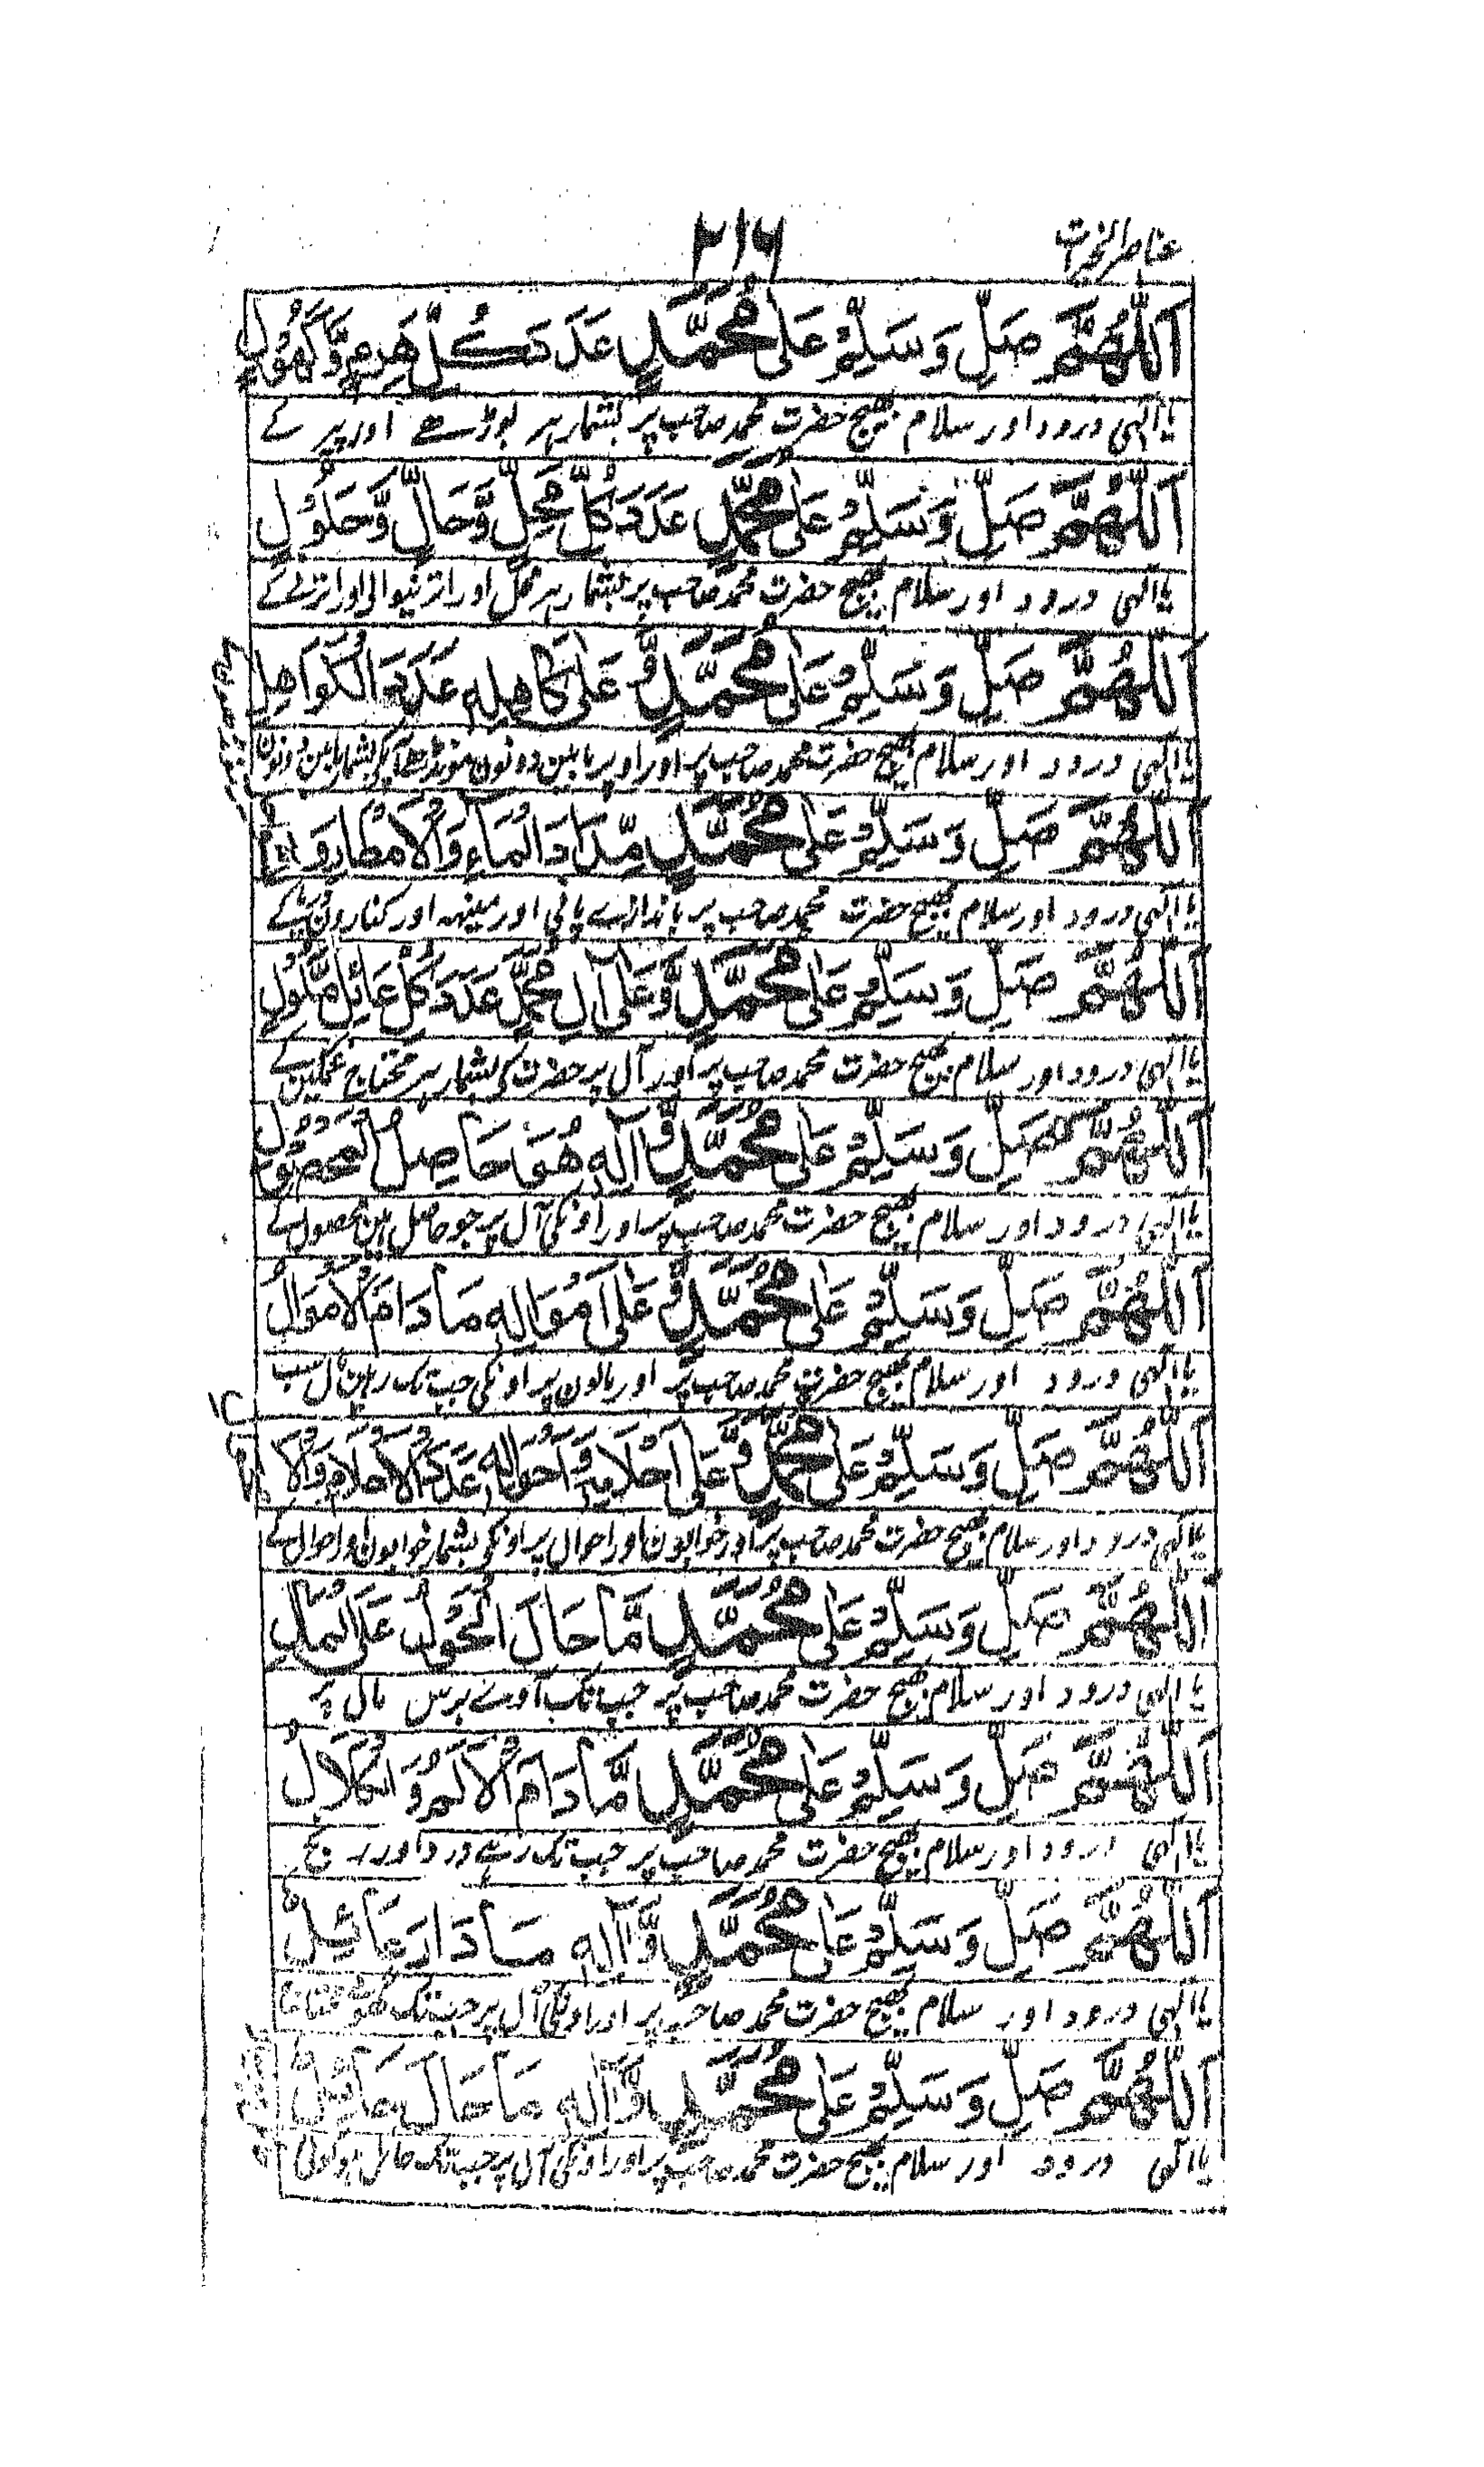 عناصر الخیرات
۲۱۶
اَللّٰهُمَّ صَلِّ وَسَلِّمْ عَلٰى مُحَمَّدٍ عَدَدَ كُلِّ هَرِمٍ وَّكَهُوْلٍ
یا الٰہی درود اور سلام بھیج حضرت محمد صاحب پر بشمار ہر بوڑھے اور پیر کے
اَللّٰهُمَّ صَلِّ وَسَلِّمْ عَلٰى مُحَمَّدٍ عَدَدَ كُلِّ مَحِلٍّ وَّحَالٍّ وَّحُلُوْلٍ
یا الٰہی درود اور سلام بھیج حضرت محمد صاحب پر بشمار ہر محل اور اترنیوالی اور اترنے کے
اَللّٰهُمَّ صَلِّ وَسَلِّمْ عَلٰى مُحَمَّدٍ وَّعَلٰى كَاهِلِهٖ عَدَدَ الْكَوَاهِلِ
یا الٰہی درود اور سلام بھیج حضرت محمد صاحب پر اور اوپر مابین دونوں مونڈھے آپکی بشمار مابین دونون
اَللّٰهُمَّ صَلِّ وَسَلِّمْ عَلٰى مُحَمَّدٍ مِّدَادَ الْمَاءِ وَالْاَمْطَارِ وَ
یا الٰہی درود اور سلام بھیج حضرت محمد صاحب پر باندازے پانی اور مینہہ اور کنارون کے
اَللّٰهُمَّ صَلِّ وَسَلِّمْ عَلٰى مُحَمَّدٍ وَّعَلٰى اٰلِ مُحَمَّدٍ عَدَدَ كُلِّ عَائِلٍ مَّلُوْلٍ
یا الٰہی درود اور سلام بھیج حضرت محمد صاحب پر اور آل پر حضرت کی بشمار ہر محتاج غمگین کے
اَللّٰهُمَّ صَلِّ وَسَلِّمْ عَلٰى مُحَمَّدٍ وَّاٰلِهٖ هُوَ حَاصِلُ الْمَحْصُوْلِ
یا الٰہی درود اور سلام بھیج حضرت محمد صاحب پر اور اونکی آل پر جو حاصل ہین محصول کے
اَللّٰهُمَّ صَلِّ وَسَلِّمْ عَلٰى مُحَمَّدٍ وَّعَلٰى اَمْوَالِهٖ مَا دَامَ الْاَمْوَالُ
یا الٰہی درود اور سلام بھیج حضرت محمد صاحب پر اور مالون پر اونکی جب تک رہین مال سب
اَللّٰهُمَّ صَلِّ وَسَلِّمْ عَلٰى مُحَمَّدٍ وَّعَلٰى اَحْلَامِهٖ وَاَحْوَالِهٖ عَدَدَ الْاَحْلَامِ وَالْاَ
یا الٰہی درود اور سلام بھیج حضرت محمد صاحب پر اور خوابون اور احوال پر اونکی بشمار خوابون اور احوال کے
اَللّٰهُمَّ صَلِّ وَسَلِّمْ عَلٰى مُحَمَّدٍ مَّا حَالَ الْحَوْلُ عَلَى الْمَالِ
یا الٰہی درود اور سلام بھیج حضرت محمد صاحب پر جب تک آوے برس مال پر
اَللّٰهُمَّ صَلِّ وَسَلِّمْ عَلٰى مُحَمَّدٍ مَّا دَامَ الْاَلَمُ وَالْكَلَالُ
یا الٰہی درود اور سلام بھیج حضرت محمد صاحب پر جب تک رہے درد اور رنج
اَللّٰهُمَّ صَلِّ وَسَلِّمْ عَلٰى مُحَمَّدٍ وَّاٰلِهٖ مَا دَارَ عَائِلٌ
یا الٰہی درود اور سلام بھیج حضرت محمد صاحب پر اور اونکی آل پر جب تک
اَللّٰهُمَّ صَلِّ وَسَلِّمْ عَلٰى مُحَمَّدٍ وَّاٰلِهٖ مَا حَالَ حَائِلٌ
یا الٰہی درود اور سلام بھیج حضرت محمد صاحب پر اور اونکی آل پر جب تک حائل ہو کوئی